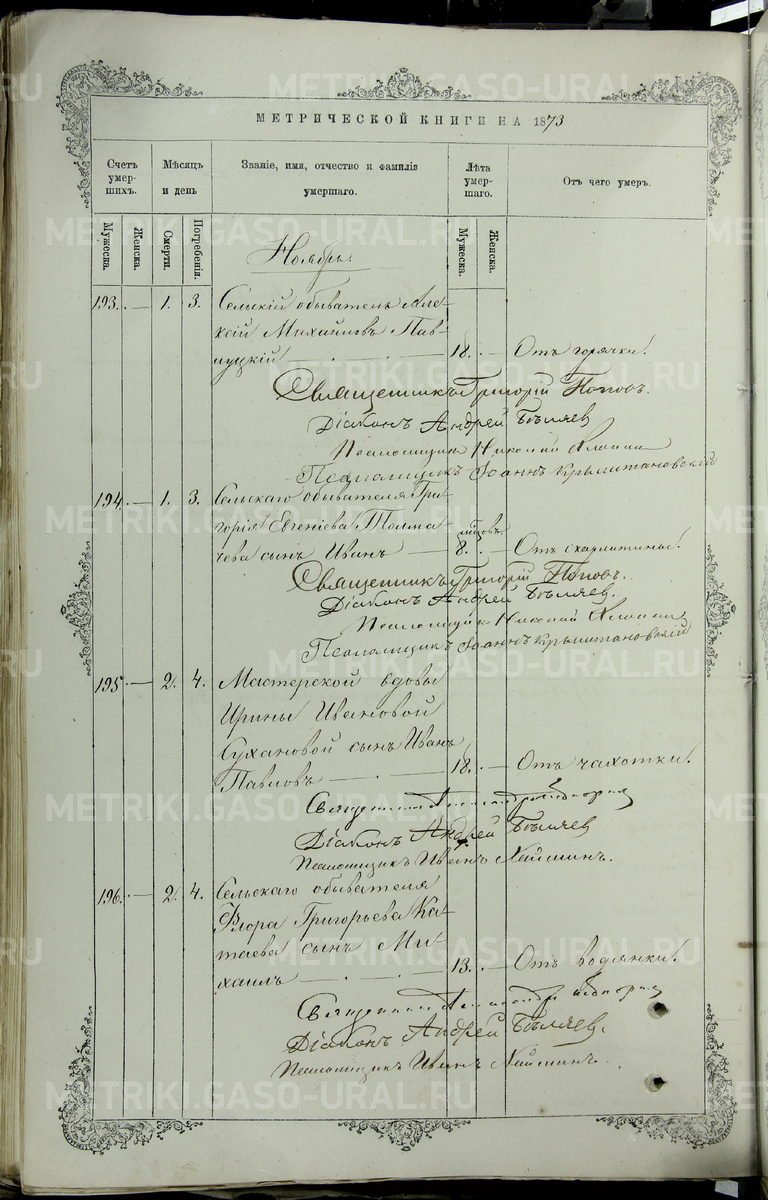 МЕТРИЧЕСКОЙ КНИГИ НА 1873
Счетъ умер-шихъ.
Мѣсяцъ и день
Званіе, имя, отчество и фамилія умершаго.
Лѣта умер-шаго.
Отъ чего умеръ.
Мужеска. Женска. Смерти. Погребенія. Мужеска. Женска.
Ноябрь.
193. — 1. 3. Сельскій обыватель Але-
ксій Михайловъ Пав-
луцкій — 18. — Отъ горячки.
Священникъ Григорій Поповъ.
Діаконъ Андрей Бѣляев
Псаломщикъ Николай
Псаломщикъ Іоаннъ Крыштановскій
194. — 1. 3. Сельскаго обывателя Гри-
горія Евгеніева Толма-
чева сынъ Иванъ — 8. мѣсяцовъ — Отъ скарлатины.
Священникъ Григорій Поповъ.
Діаконъ Андрей Бѣляев.
Псаломщикъ Николай
Псаломщикъ Іоаннъ Крыштановскій
195 — 2. 4. Мастерской вдовы
Ирины Ивановой
Сухановой сынъ Иванъ
Павловъ — 18. — Отъ чахотки.
Священникъ
Діаконъ Андрей Бѣляев
Псаломщикъ Иванъ
196. — 2. 4. Сельскаго обывателя
Флора Григорьева Ка-
таева сынъ Ми-
хаилъ — 13. — Отъ водянки.
Священникъ
Діаконъ Андрей Бѣляев.
Псаломщикъ Иванъ
METRIKI.GASO-URAL.RU